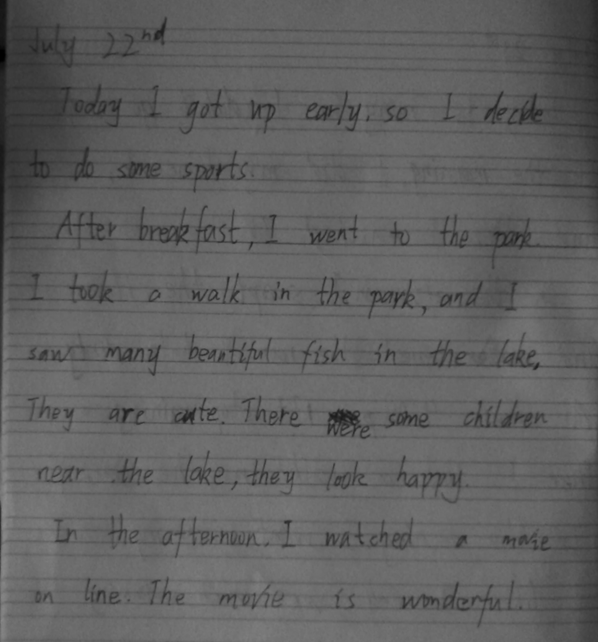 July 22nd
Today I got up early, so I decide
to do some sports.
After breakfast, I went to the park.
I took a walk in the park, and I
saw many beautiful fish in the lake,
They are cute. There were some children
near the lake, they look happy.
In the afternoon. I watched a movie
on line. The movie is wonderful.